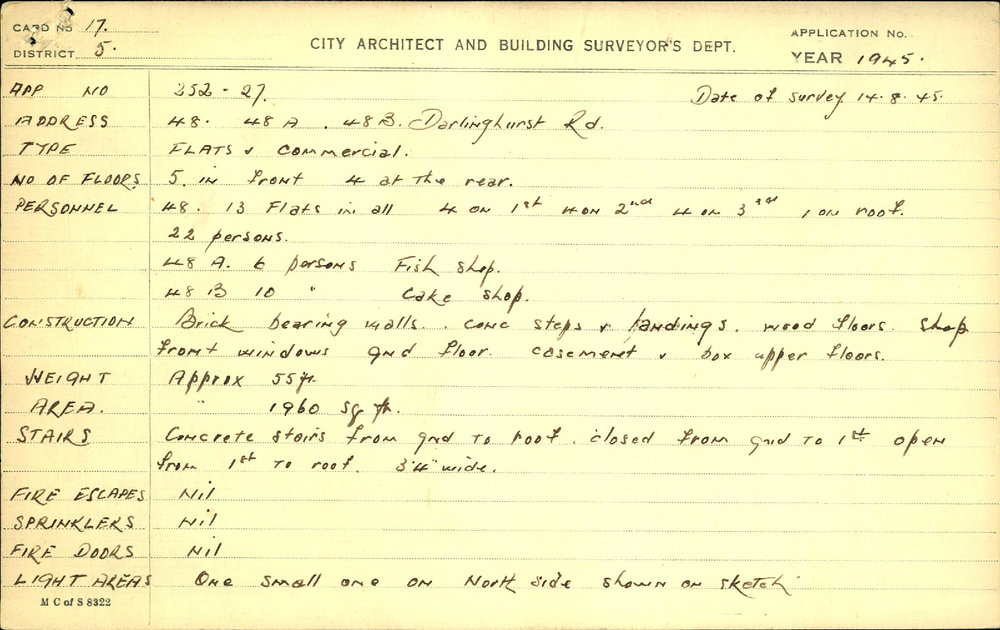 CARD No 17.
DISTRICT 5.
CITY ARCHITECT AND BUILDING SURVEYOR'S DEPT.
APPLICATION No.
YEAR 1945.
APP NO 252-27. Date of survey 14.8.45.
ADDRESS 48. 48A. 48B. Darlinghurst Rd.
TYPE FLATS & Commercial.
NO OF FLOORS 5. in front 4 at the rear.
PERSONNEL 48. 13 Flats in all 4 on 1st 4 on 2nd 4 on 3rd 1 on roof.
22 persons.
48 A. 6 persons Fish shop.
48 B 10 " Cake shop.
CONSTRUCTION Brick bearing walls. conc steps & landings. wood floors. Shop
front windows gnd floor. casement & box upper floors.
HEIGHT Approx 55ft.
AREA. " 1960 sq ft.
STAIRS Concrete stairs from gnd to roof. closed from gnd to 1st open
from 1st to roof. 3'4" wide.
FIRE ESCAPES Nil
SPRINKLERS Nil
FIRE DOORS Nil
LIGHT AREAS One small one on North side shown on sketch
M C of S 8322